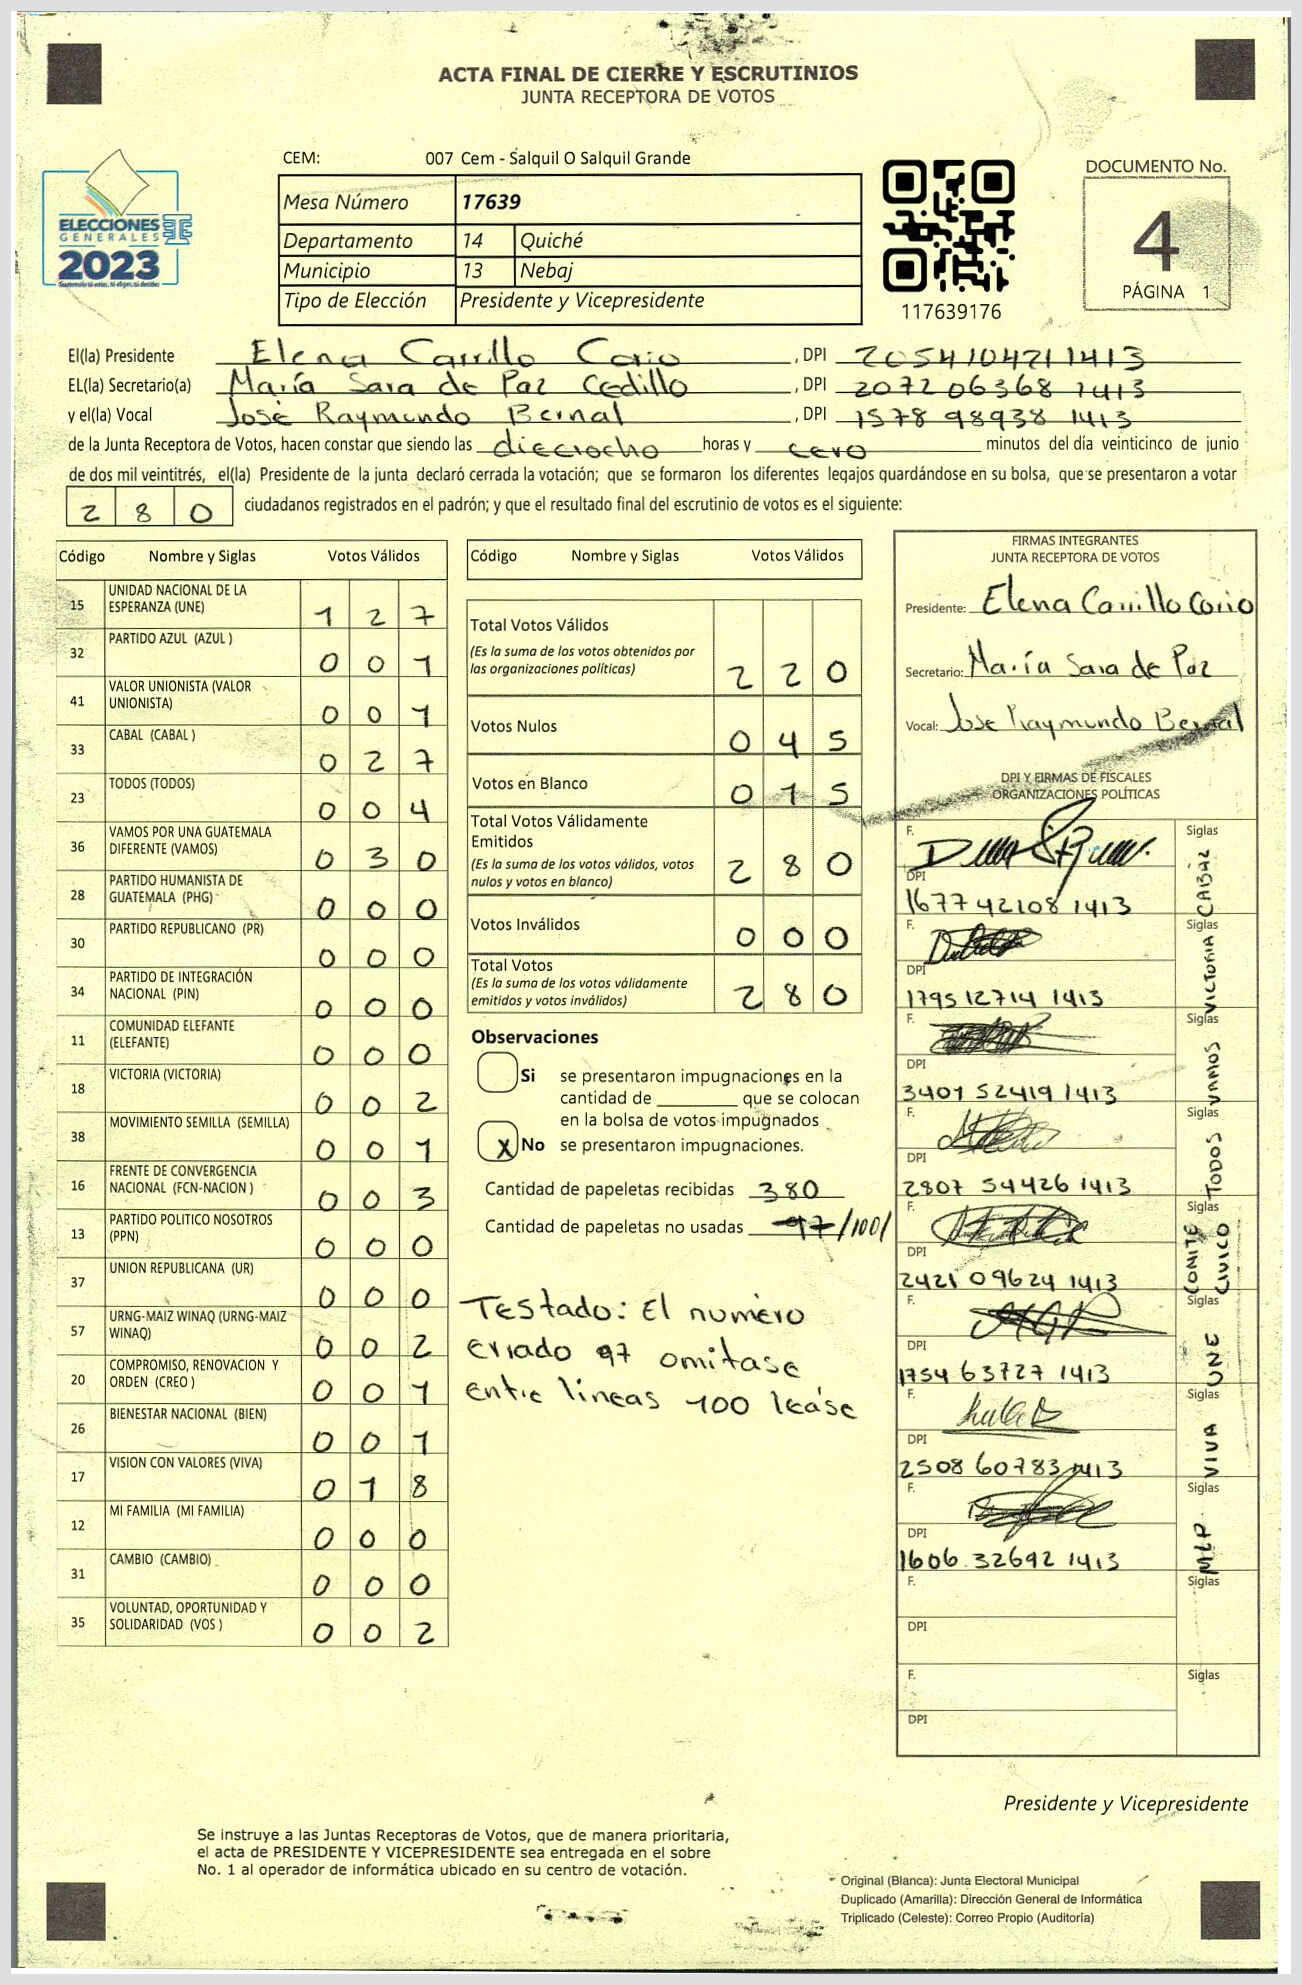 ACTA FINAL DE CIERRE Y ESCRUTINIOS
JUNTA RECEPTORA DE VOTOS
CEM: 007 Cem - Salquil O Salquil Grande
ELECCIONES
GENERALES
2023
Mesa Número 17639
Departamento 14 Quiché
Municipio 13 Nebaj
Tipo de Elección Presidente y Vicepresidente
117639176
DOCUMENTO No.
4
PÁGINA 1
El(la) Presidente Elena Carrillo Corio , DPI 2054104211413
EL(la) Secretario(a) María Sara de Paz Cedillo , DPI 2072 06368 1413
y el(la) Vocal José Raymundo Bernal , DPI 1578 98938 1413
de la Junta Receptora de Votos, hacen constar que siendo las dieciocho horas y cero minutos del día veinticinco de junio
de dos mil veintitrés, el(la) Presidente de la junta declaró cerrada la votación; que se formaron los diferentes legajos quardándose en su bolsa, que se presentaron a votar
2 8 0 ciudadanos registrados en el padrón; y que el resultado final del escrutinio de votos es el siguiente:
Código Nombre y Siglas Votos Válidos
15 UNIDAD NACIONAL DE LA
ESPERANZA (UNE) 1 2 7
32 PARTIDO AZUL (AZUL ) 0 0 1
41 VALOR UNIONISTA (VALOR
UNIONISTA) 0 0 1
33 CABAL (CABAL ) 0 2 7
23 TODOS (TODOS) 0 0 4
36 VAMOS POR UNA GUATEMALA
DIFERENTE (VAMOS) 0 3 0
28 PARTIDO HUMANISTA DE
GUATEMALA (PHG) 0 0 0
30 PARTIDO REPUBLICANO (PR) 0 0 0
34 PARTIDO DE INTEGRACIÓN
NACIONAL (PIN) 0 0 0
11 COMUNIDAD ELEFANTE
(ELEFANTE) 0 0 0
18 VICTORIA (VICTORIA) 0 0 2
38 MOVIMIENTO SEMILLA (SEMILLA) 0 0 1
16 FRENTE DE CONVERGENCIA
NACIONAL (FCN-NACION ) 0 0 3
13 PARTIDO POLITICO NOSOTROS
(PPN) 0 0 0
37 UNION REPUBLICANA (UR) 0 0 0
57 URNG-MAIZ WINAQ (URNG-MAIZ
WINAQ) 0 0 2
20 COMPROMISO, RENOVACION Y
ORDEN (CREO ) 0 0 1
26 BIENESTAR NACIONAL (BIEN) 0 0 1
17 VISION CON VALORES (VIVA) 0 1 8
12 MI FAMILIA (MI FAMILIA) 0 0 0
31 CAMBIO (CAMBIO) 0 0 0
35 VOLUNTAD, OPORTUNIDAD Y
SOLIDARIDAD (VOS ) 0 0 2
Código Nombre y Siglas Votos Válidos
Total Votos Válidos
(Es la suma de los votos obtenidos por
las organizaciones políticas) 2 2 0
Votos Nulos 0 4 5
Votos en Blanco 0 1 5
Total Votos Válidamente
Emitidos
(Es la suma de los votos válidos, votos
nulos y votos en blanco) 2 8 0
Votos Inválidos 0 0 0
Total Votos
(Es la suma de los votos válidamente
emitidos y votos inválidos) 2 8 0
Observaciones
Si se presentaron impugnaciones en la
cantidad de ________ que se colocan
en la bolsa de votos impugnados
x No se presentaron impugnaciones.
Cantidad de papeletas recibidas 380
Cantidad de papeletas no usadas 97/100/
Testado: El numero
errado 97 omitase
entre lineas 100 lease
FIRMAS INTEGRANTES
JUNTA RECEPTORA DE VOTOS
Presidente: Elena Carrillo Corio
Secretario: María Sara de Paz
Vocal: Jose Raymundo Bernal
DPI Y FIRMAS DE FISCALES
ORGANIZACIONES POLÍTICAS
F. Siglas CABAL
DPI
1677 42108 1413
F. Siglas VICTORIA
DPI
1795 12714 1413
F. Siglas VAMOS
DPI
3401 52419 1413
F. Siglas TODOS
DPI
2807 54426 1413
F. Siglas COMITE CIVICO
DPI
2421 09624 1413
F. Siglas UNE
DPI
1754 63727 1413
F. Siglas VIVA
DPI
2508 60783 1413
F. Siglas MLP
DPI
1606 32692 1413
F. Siglas
DPI
F. Siglas
DPI
Presidente y Vicepresidente
Se instruye a las Juntas Receptoras de Votos, que de manera prioritaria,
el acta de PRESIDENTE Y VICEPRESIDENTE sea entregada en el sobre
No. 1 al operador de informática ubicado en su centro de votación.
Original (Blanca): Junta Electoral Municipal
Duplicado (Amarilla): Dirección General de Informática
Triplicado (Celeste): Correo Propio (Auditoría)